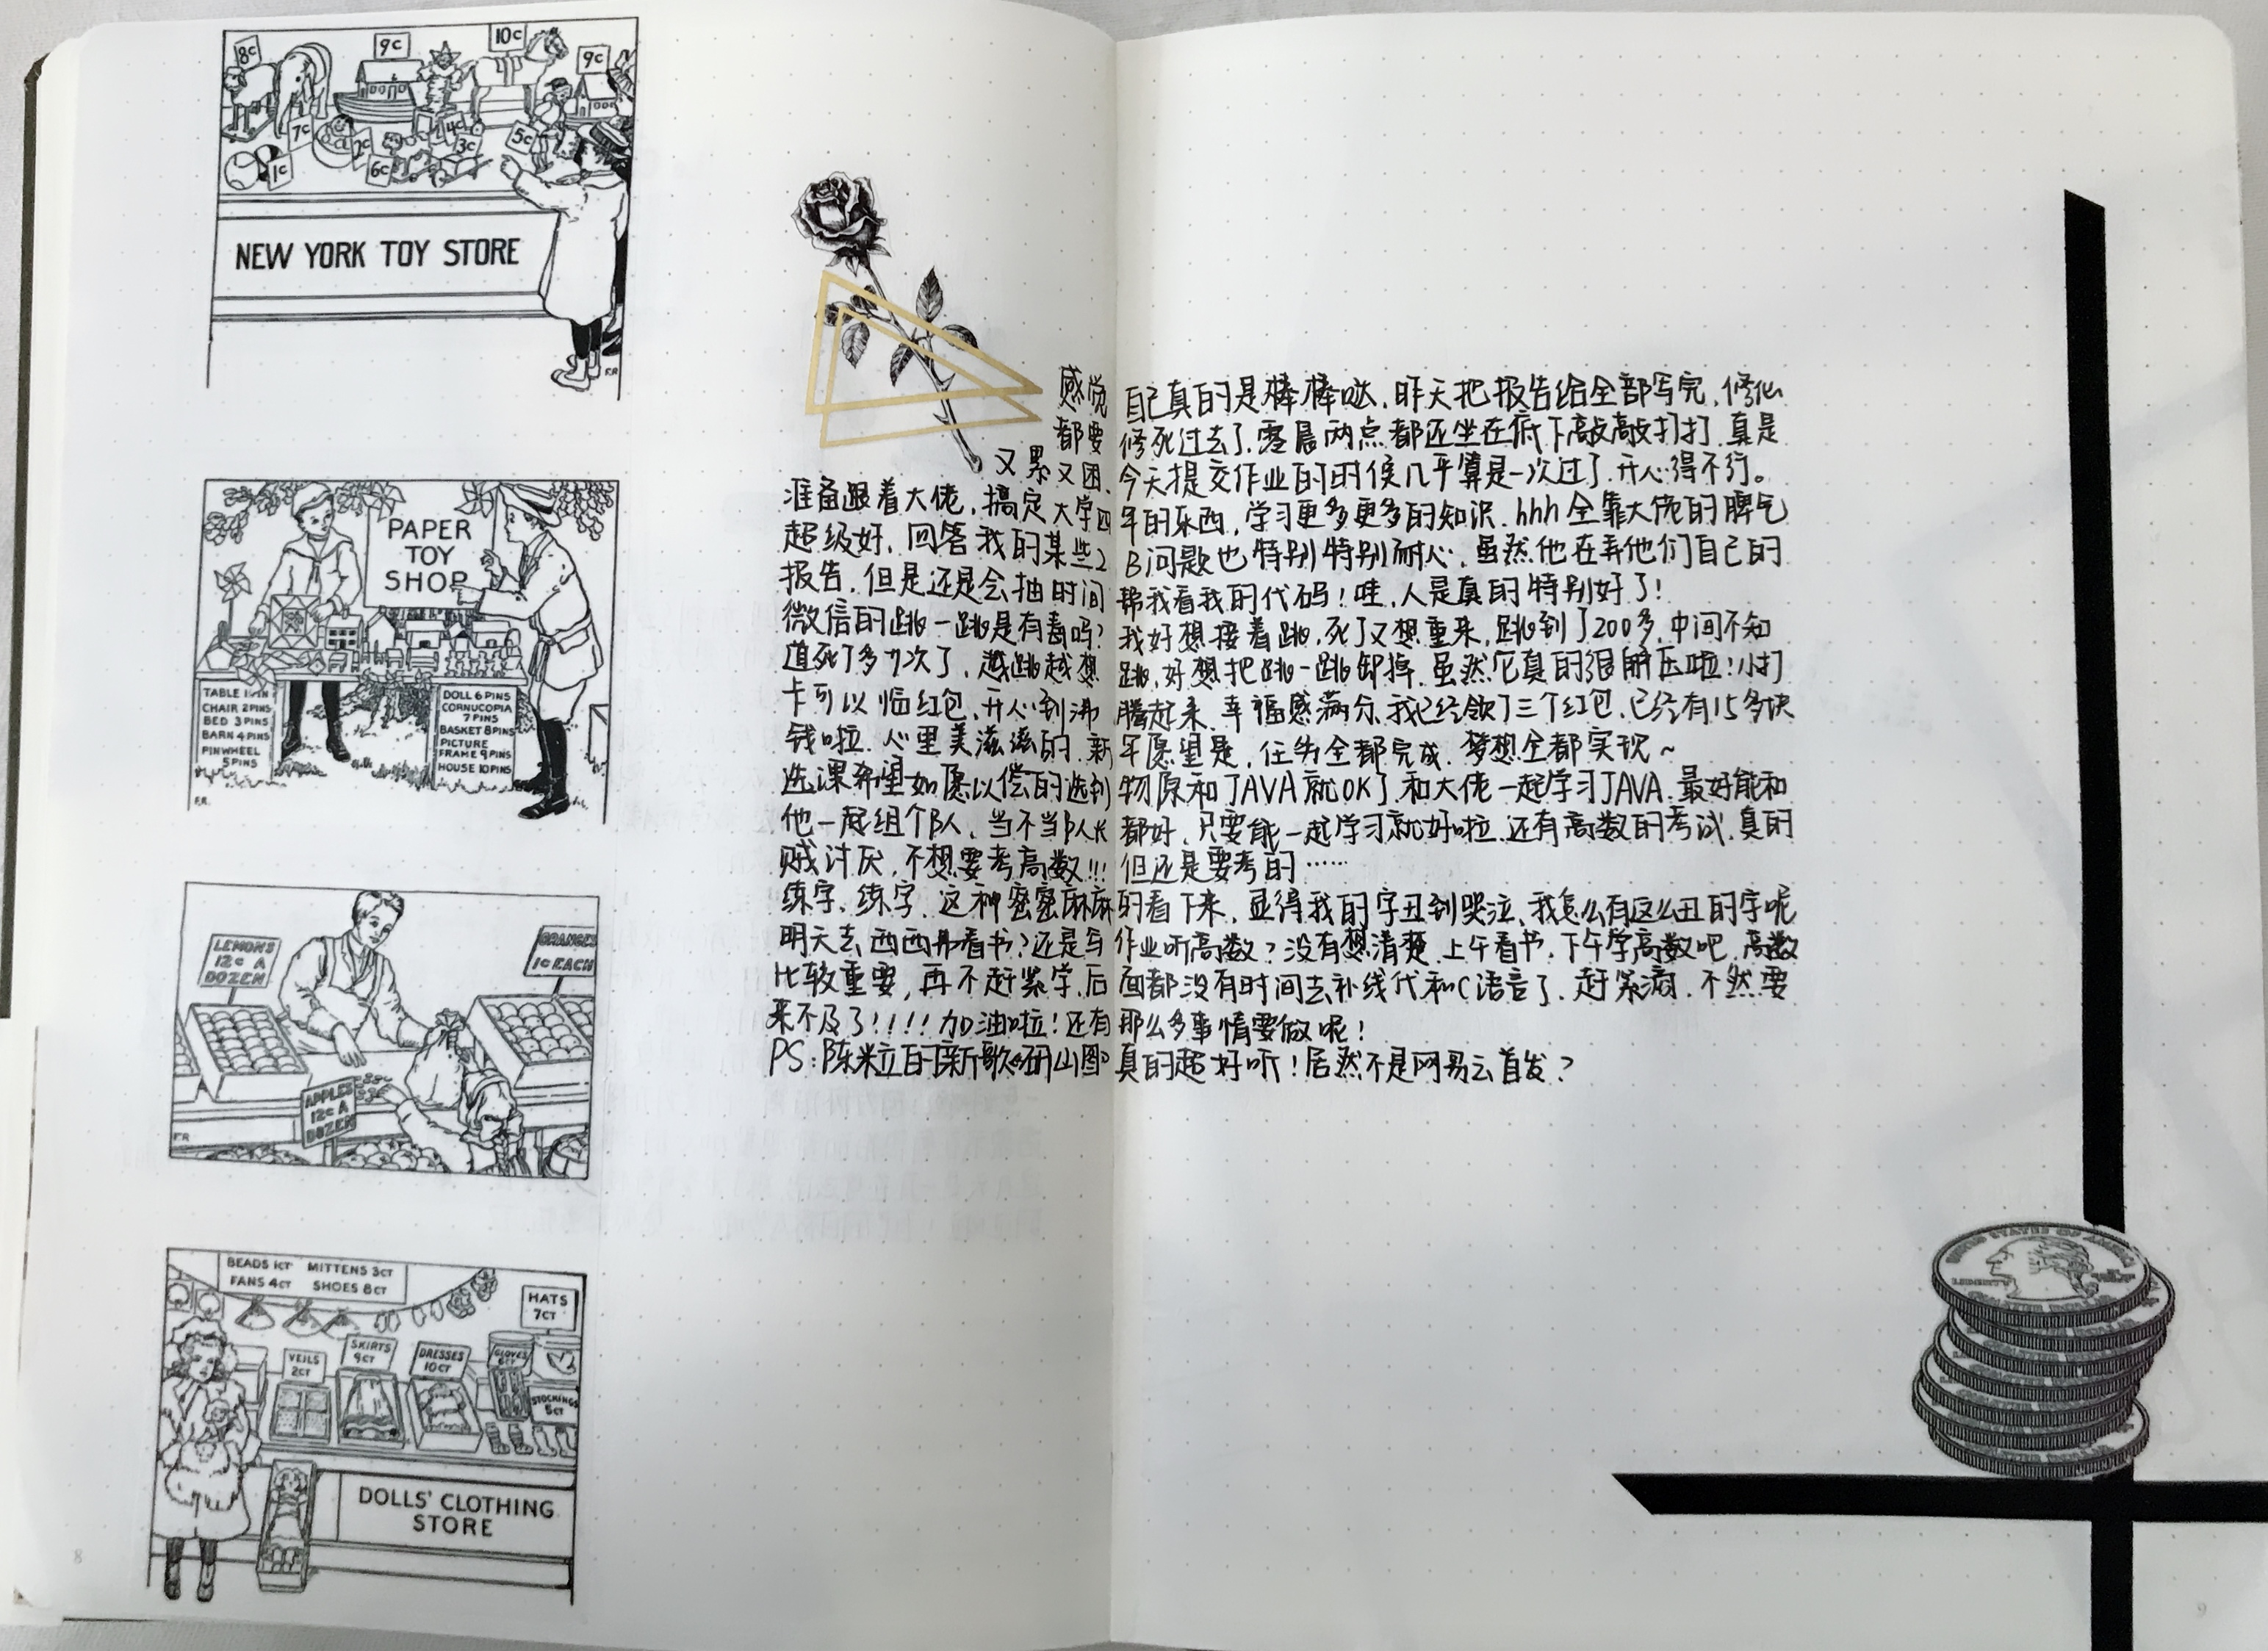 8c
9c
10c
9c
7c
2c
4c
3c
5c
1c
6c
NEW YORK TOY STORE
F.R.
PAPER
TOY
SHOP
TABLE 1 PIN
CHAIR 2 PINS
BED 3 PINS
BARN 4 PINS
PINWHEEL
5 PINS
DOLL 6 PINS
CORNUCOPIA
7 PINS
BASKET 8 PINS
PICTURE
FRAME 9 PINS
HOUSE 10 PINS
F.R.
LEMONS
12c A
DOZEN
ORANGES
1c EACH
APPLES
12c A
DOZEN
F.R
BEADS 1CT MITTENS 3CT
FANS 4CT SHOES 8CT
HATS
7CT
VEILS
2CT
SKIRTS
9CT
DRESSES
10CT
GLOVES
6CT
STOCKINGS
5CT
DOLLS' CLOTHING
STORE
8
感觉自己真的是棒棒哒，昨天把报告给全部写完，修仙
都要修死过去了，零晨两点都还坐在底下敲敲打打，真是
又累又困，今天提交作业的时候几乎算是一次过了，开心得不行。
准备跟着大佬，搞定大学四年的东西，学习更多更多的知识，hhh全靠大佬的脾气
超级好，回答我的某些2B问题也特别特别耐心，虽然他在弄他们自己的
报告，但是还是会抽时间帮我看我的代码！哇，人是真的特别好了！
微信的跳一跳是有毒吗？我好想接着跳，死了又想重来，跳到了200多，中间不知
道死了多少次了，越跳越想跳，好想把跳一跳卸掉，虽然它真的很解压啦！小打
卡可以临红包，开心到沸腾起来，幸福感满分，我已经领了三个红包，已经有15多块
钱啦，心里美滋滋的，新年愿望是，任务全都完成，梦想全都实现～
选课希望如愿以偿的选到物原和JAVA就OK了，和大佬一起学习JAVA，最好能和
他一起组个队，当不当队长都好，只要能一起学习就好啦，还有高数的考试，真的
贼讨厌，不想要考高数!!!但还是要考的……
练字，练字，这种密密麻麻的看下来，显得我的字丑到哭泣，我怎么有这么丑的字呢
明天去西西弗看书？还是写作业听高数？没有想清楚，上午看书，下午学高数吧，高数
比较重要，再不赶紧学，后面都没有时间去补线代和C语言了，赶紧滴，不然要
来不及了！！！！加油啦！还有那么多事情要做呢！
PS：陈粒的新歌《研山图》真的超好听！居然不是网易云首发？
UNITED STATES OF AMERICA
LIBERTY
QUARTER DOLLAR
9